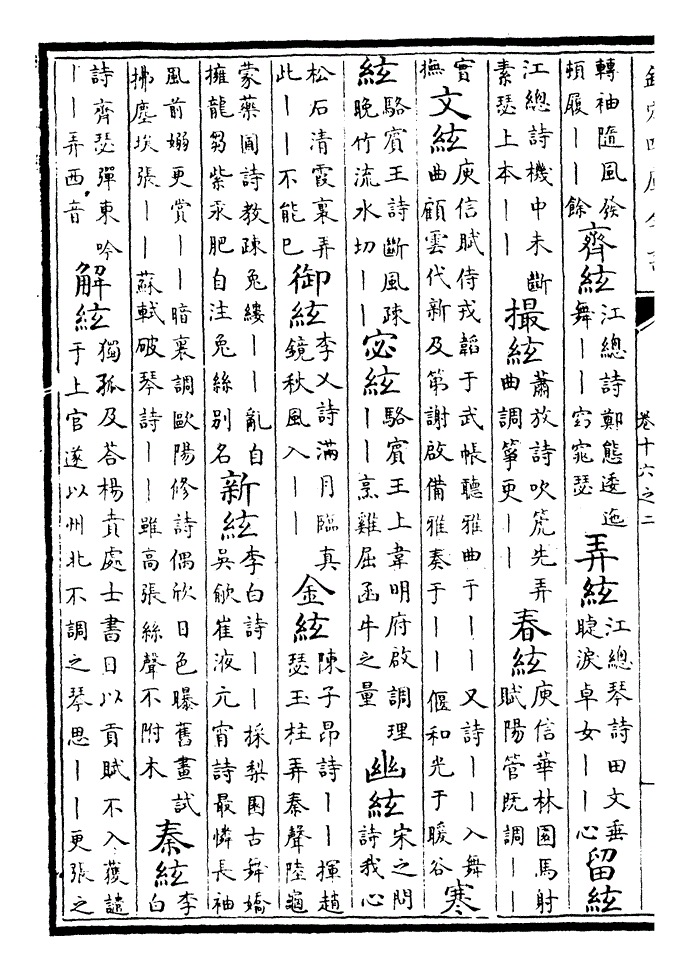 欽定四庫全書
卷十六之二
轉袖隨風發
頓履丨丨餘
齊絃
江總詩鄭態逶迤
舞丨丨窈窕瑟
弄絃
江總琴詩田文垂
睫淚卓女丨丨心
留絃
江總詩機中未斷
素瑟上本丨丨
撮絃
蕭放詩吹箎先弄
曲調箏更丨丨
春絃
庾信華林園馬射
賦陽管既調丨丨
實
撫
文絃
庾信賦侍戎韜于武帳聽雅曲于丨丨又詩丨丨入舞
曲顧雲代新及第謝啟備雅奏于丨丨偃和光于暖谷
寒
絃
駱賓王詩斷風疎
晚竹流水切丨丨
宻絃
駱賓王上韋明府啟調理
丨丨烹雞屈函牛之量
幽絃
宋之問
詩我心
松石清霞裏弄
此丨丨不能已
御絃
李乂詩滿月臨真
鏡秋風入丨丨
金絃
陳子昂詩丨丨揮趙
瑟玉柱弄秦聲陸龜
蒙藥圃詩教疎兔縷丨丨亂自
擁龍芻紫汞肥自注兔絲别名
新絃
李白詩丨丨採梨園古舞嬌
吳歈崔液元宵詩最憐長袖
風前嫋更賞丨丨暗裏調歐陽修詩偶欣日色曝舊畫試
拂塵埃張丨丨蘇軾破琴詩丨丨雖高張絲聲不附木
秦絃
李
白
詩齊瑟彈東吟
丨丨弄西音
解絃
獨孤及荅楊賁處士書日以貢賦不入獲譴
于上官遂以州北不調之琴思丨丨更張之